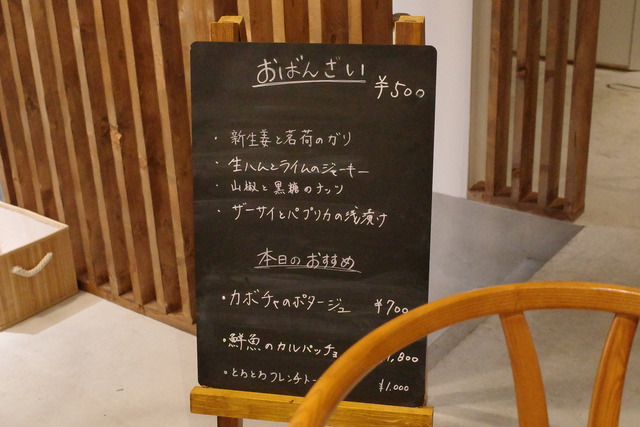 おばんざい
¥500
・新生姜と茗荷のガリ
・生ハムとライムのジャーキー
・山椒と黒糖のナッツ
・ザーサイとパプリカの浅漬け
本日のおすすめ
・カボチャのポタージュ ¥700
・鮮魚のカルパッチョ 1,800
・とわとわフレンチト ¥1,000